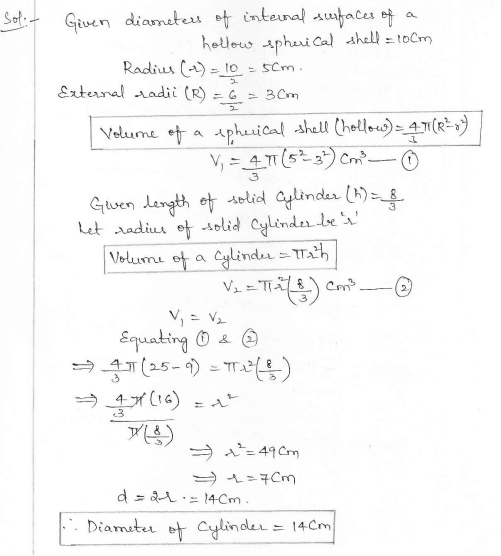 Sol:- Given diameters of internal surfaces of a
hollow spherical shell = 10cm
Radius (r) = 10/2 = 5cm.
External radii (R) = 6/2 = 3cm
Volume of a spherical shell (hollow) = 4/3 π(R²-r²)
V₁ = 4/3 π(5²-3²) cm³ — ①
Given length of solid cylinder (h) = 8/3
Let radius of solid cylinder be 'r'
Volume of a cylinder = πr²h
V₂ = πr²(8/3) cm³ — ②
V₁ = V₂
Equating ① & ②
⇒ 4/3 π(25-9) = πr²(8/3)
⇒ 4/3 π(16) / π(8/3) = r²
⇒ r² = 49cm
⇒ r = 7cm
d = 2r = 14cm.
∴ Diameter of cylinder = 14cm